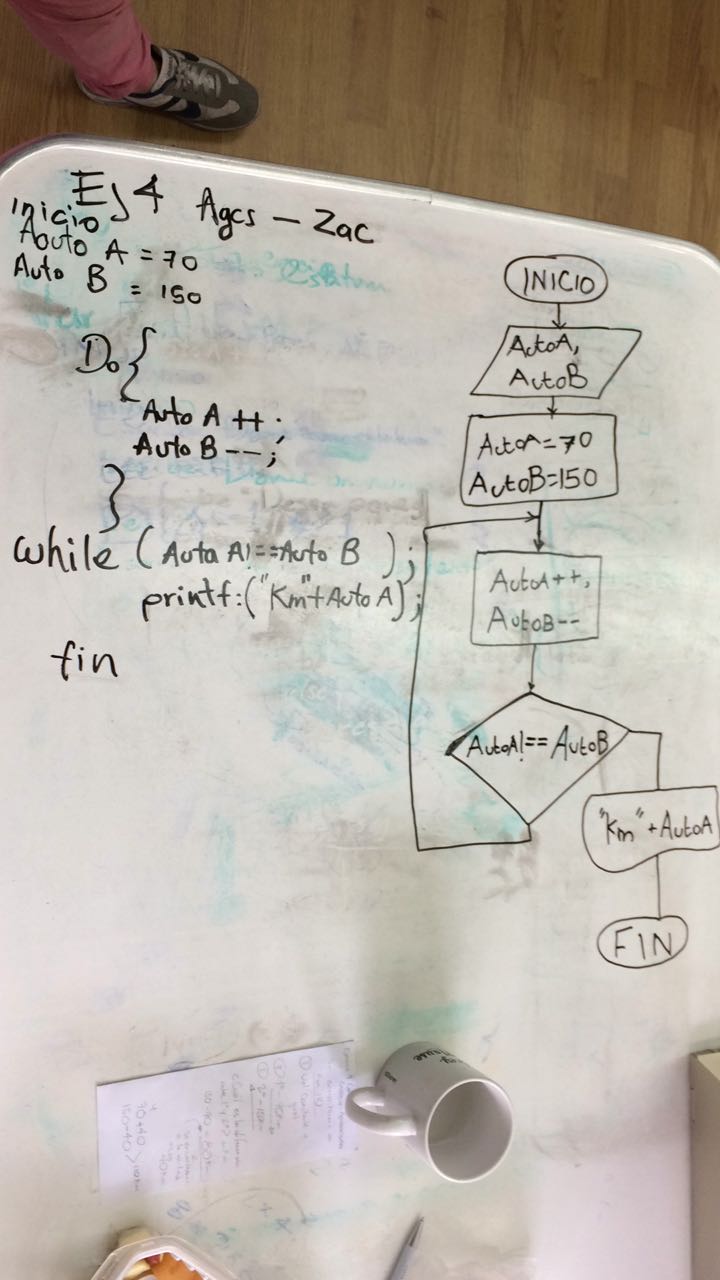 Ej 4 Agcs - Zac
Inicio
Aouto A = 70
Auto B = 150
Do {
Auto A ++;
Auto B --;
}
while (Auta A!==Auto B );
printf:("Km"+Auto A);
fin
INICIO
AutoA,
AutoB
AutoA=70
AutoB=150
AutoA++,
AutoB--
AutoA!== AutoB
"Km"+AutoA
FIN
70+40
150-40